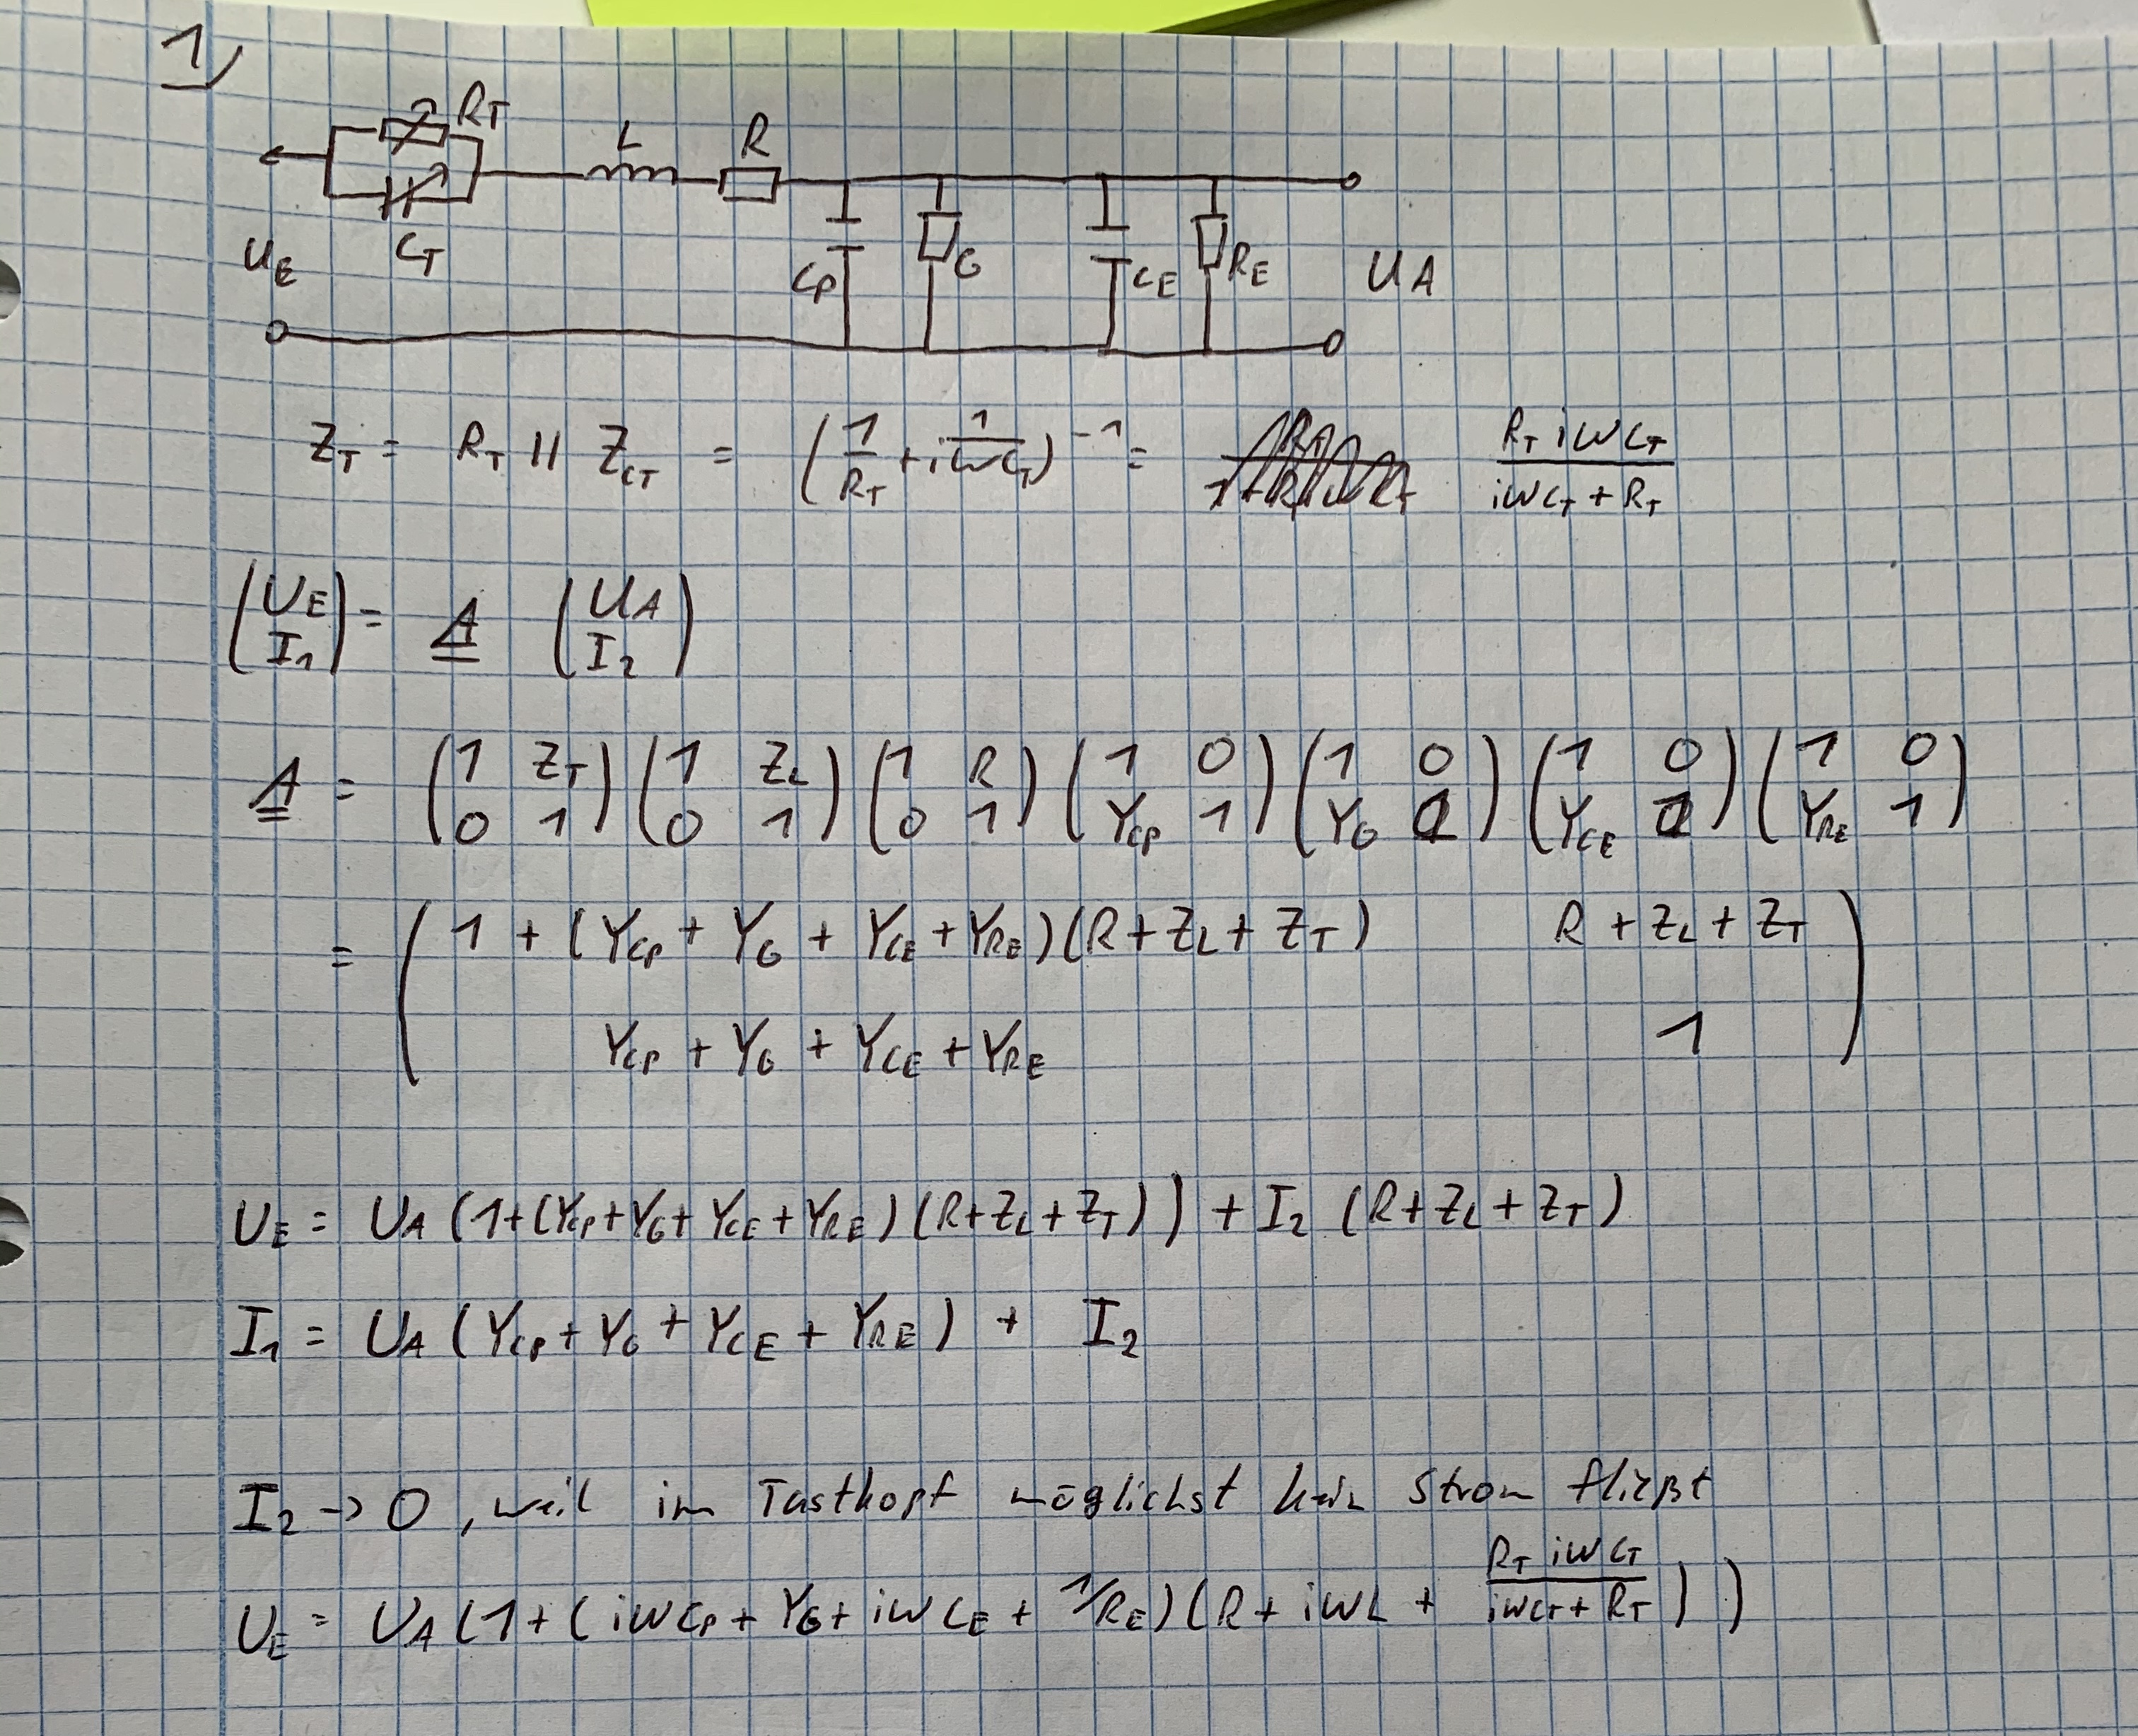 1)
R_T
L R
C_T
U_E C_P G C_E R_E U_A
Z_T = R_T || Z_CT = (1/R_T + i 1/(ωC_T))^-1 = (R_T iωC_T)/(iωC_T + R_T)
(U_E I_1) = A (U_A I_2)
A = (1 Z_T 0 1) (1 Z_L 0 1) (1 R 0 1) (1 0 Y_CP 1) (1 0 Y_G 1) (1 0 Y_CE 1) (1 0 Y_RE 1)
= (1 + (Y_CP + Y_G + Y_CE + Y_RE)(R + Z_L + Z_T) R + Z_L + Z_T
Y_CP + Y_G + Y_CE + Y_RE 1)
U_E = U_A (1+(Y_CP+Y_G+Y_CE+Y_RE)(R+Z_L+Z_T)) + I_2 (R+Z_L+Z_T)
I_1 = U_A (Y_CP + Y_G + Y_CE + Y_RE) + I_2
I_2 -> 0, weil im Tastkopf möglichst kein Strom fließt
U_E = U_A (1+(iωC_P + Y_G + iωC_E + 1/R_E)(R + iωL + (R_T iωC_T)/(iωC_T + R_T)))